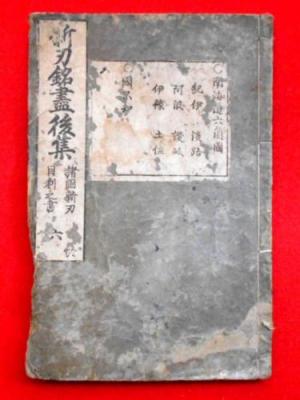 〇南海道六箇國
紀伊 淡路
阿波 讃岐
伊豫 土佐
〇國不知
新刃銘盡後集
諸國新刃
目利之書 六